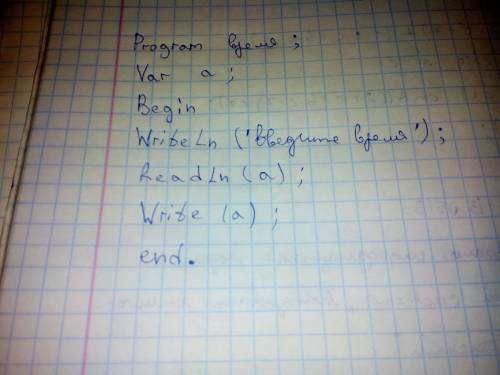 Program время ;
Var a ;
Begin
WriteLn ('введите время') ;
ReadLn (a) ;
Write (a) ;
end.